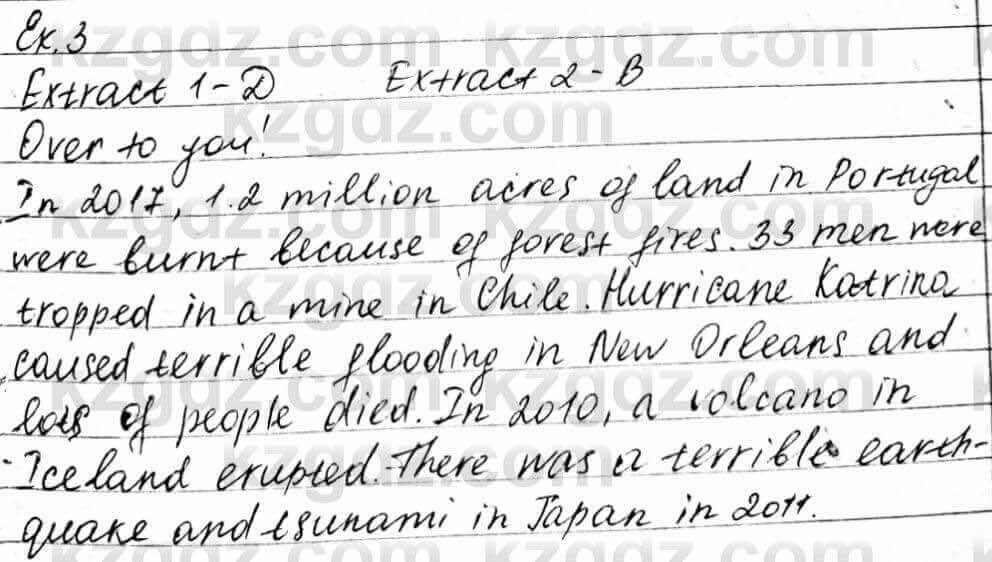 Ex. 3
Extract 1 - D Extract 2 - B
Over to you!
In 2017, 1.2 million acres of land in Portugal
were burnt because of forest fires. 33 men were
tropped in a mine in Chile. Hurricane Katrina
caused terrible flooding in New Orleans and
lots of people died. In 2010, a volcano in
Iceland erupted. There was a terrible earth-
quake and tsunami in Japan in 2011.
kzgdz.com